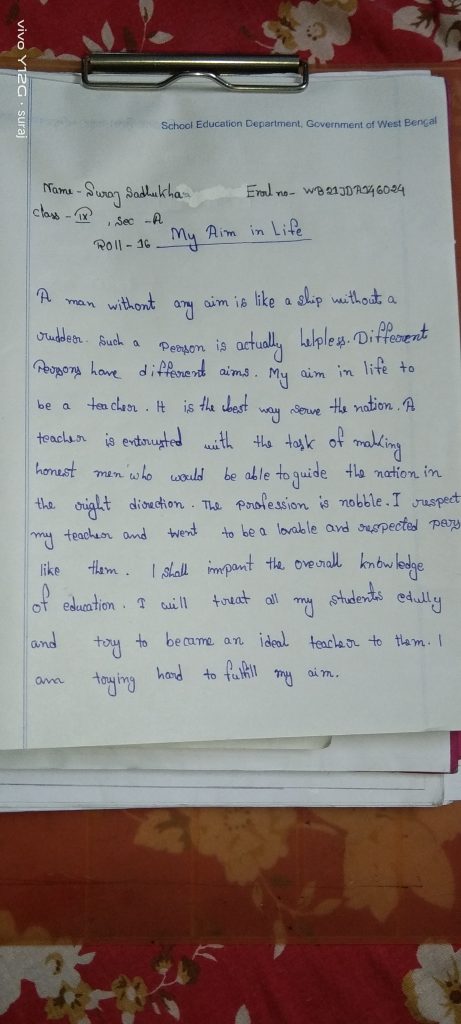 vivo Y12G · suraj
School Education Department, Government of West Bengal
Name - Suraj Sadhukhan Enrl no - WB21JDA146024
class - IX, Sec - A
Roll - 16 My Aim in Life
A man without any aim is like a ship without a
rudder. Such a Person is actually helpless. Different
Persons have different aims. My aim in life to
be a teacher. It is the best way serve the nation. A
teacher is entrusted with the task of making
honest men who would be able to guide the nation in
the right direction. The profession is nobble. I respect
my teacher and went to be a lovable and respected pers
like them. I shall impant the overall knowledge
of education. I will treat all my students edully
and try to became an ideal teacher to them. I
am trying hard to fulfill my aim.